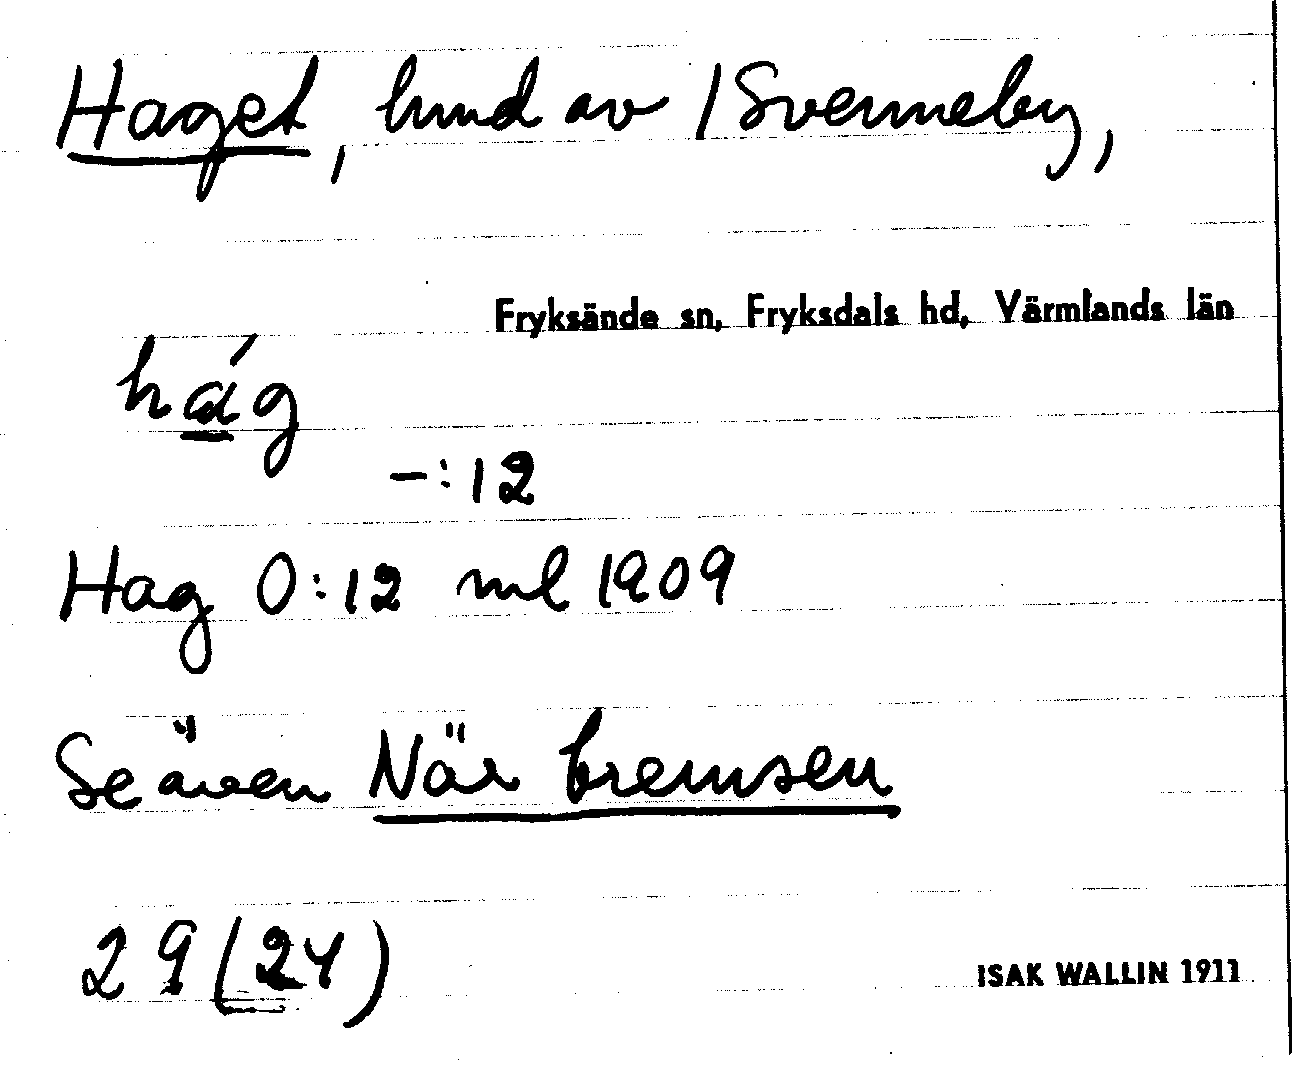 Haget, hmd av 1 Svenneby,
Fryksände sn, Fryksdals hd, Värmlands län
hág
–:12
Hag 0:12 ml 1909
Se även När bremsen
29 (24)
ISAK WALLIN 1911